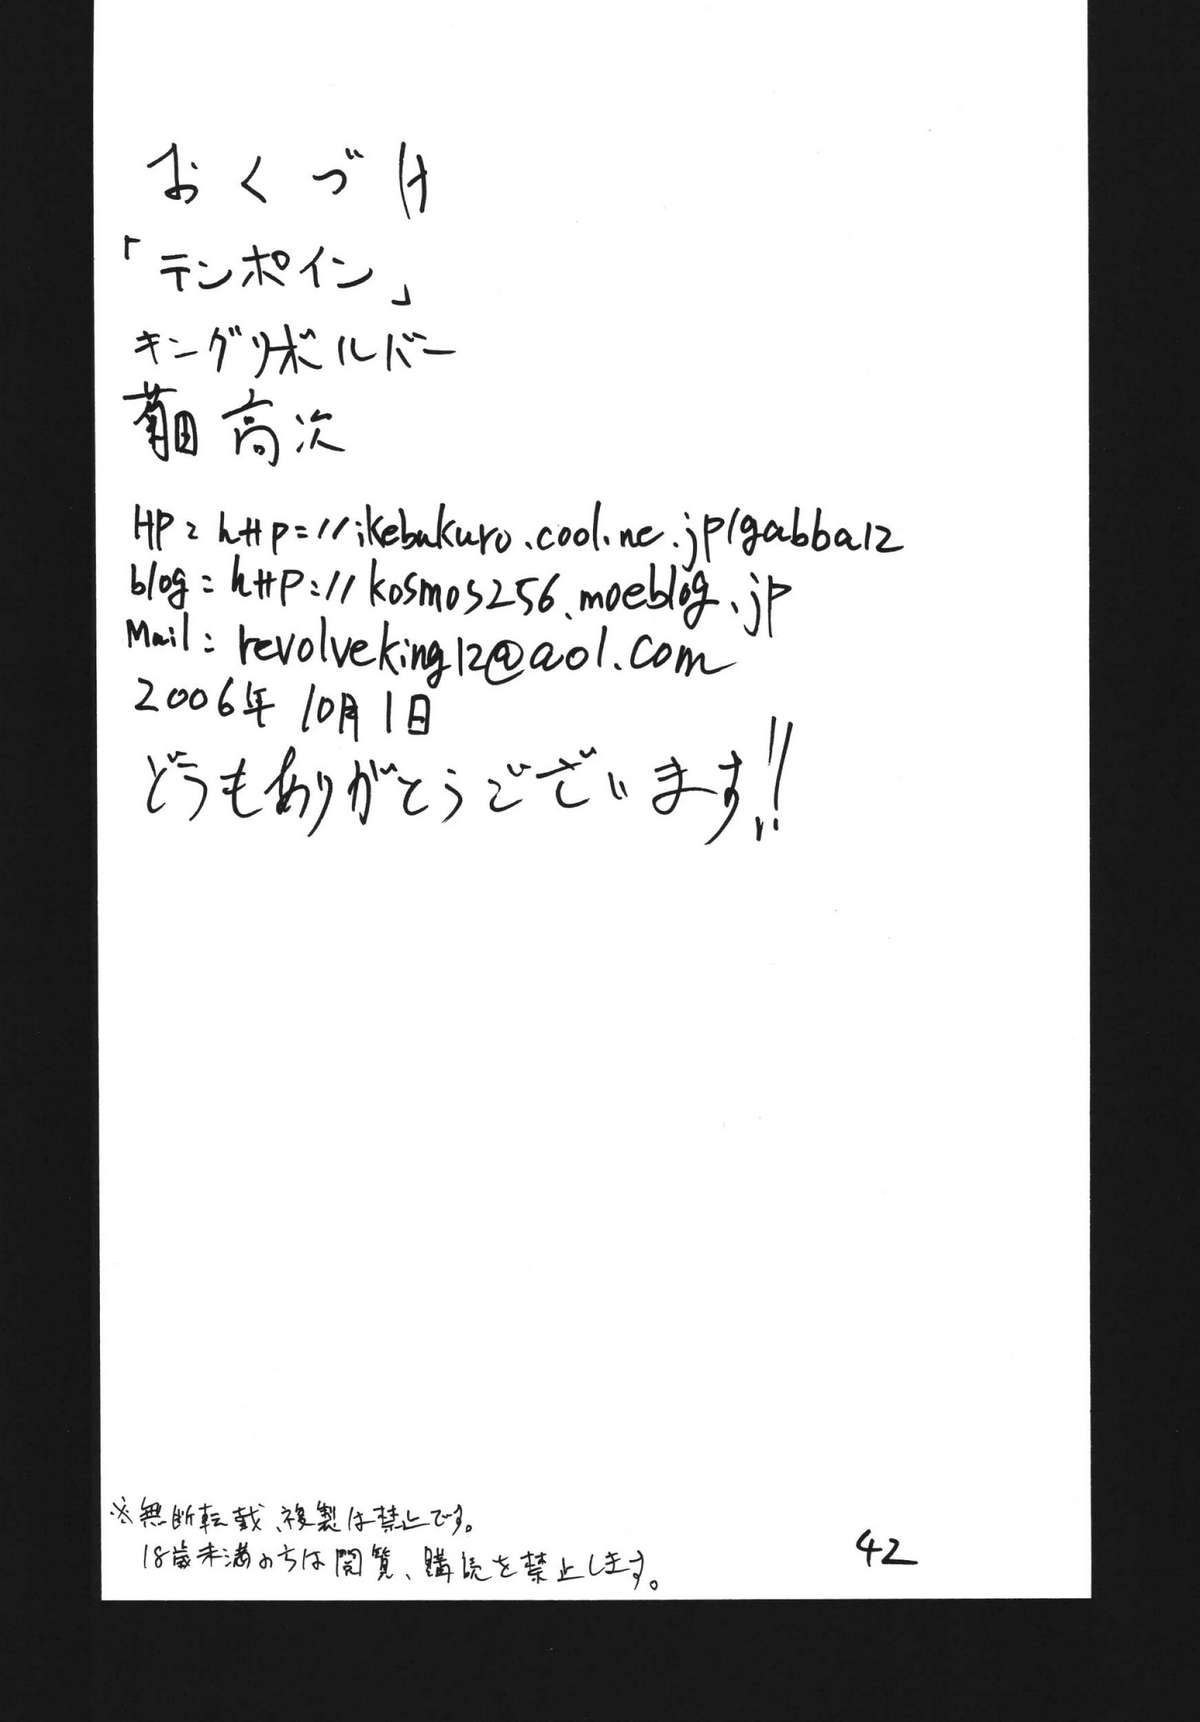 おくづけ
「テンポイン」
キングリボルバー
菊田 高次
HP: http://ikebukuro.cool.ne.jp/gabba12
blog: http://kosmos256.moeblog.jp
Mail: revolveking12@aol.com
2006年 10月1日
どうもありがとうございます!!
※無断転載、複製は禁止です。
18歳未満の方は閲覧、購読を禁止します。
42